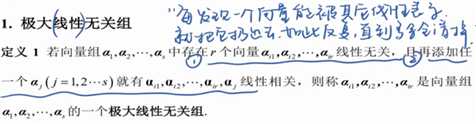 1. 极大(线性)无关组
"每发现一个向量能被其它线性表示
就把它扔出去,如此反复,直到
定义 1 若向量组α₁,α₂,⋯,αₛ中存在 r 个向量αᵢ₁,αᵢ₂,⋯,αᵢᵣ线性无关,且再添加任
① ②
一个αⱼ(j=1,2⋯s)就有αᵢ₁,αᵢ₂,⋯,αᵢᵣ,αⱼ线性相关,则称αᵢ₁,αᵢ₂,⋯,αᵢᵣ是向量组
α₁,α₂,⋯,αₛ的一个极大线性无关组.